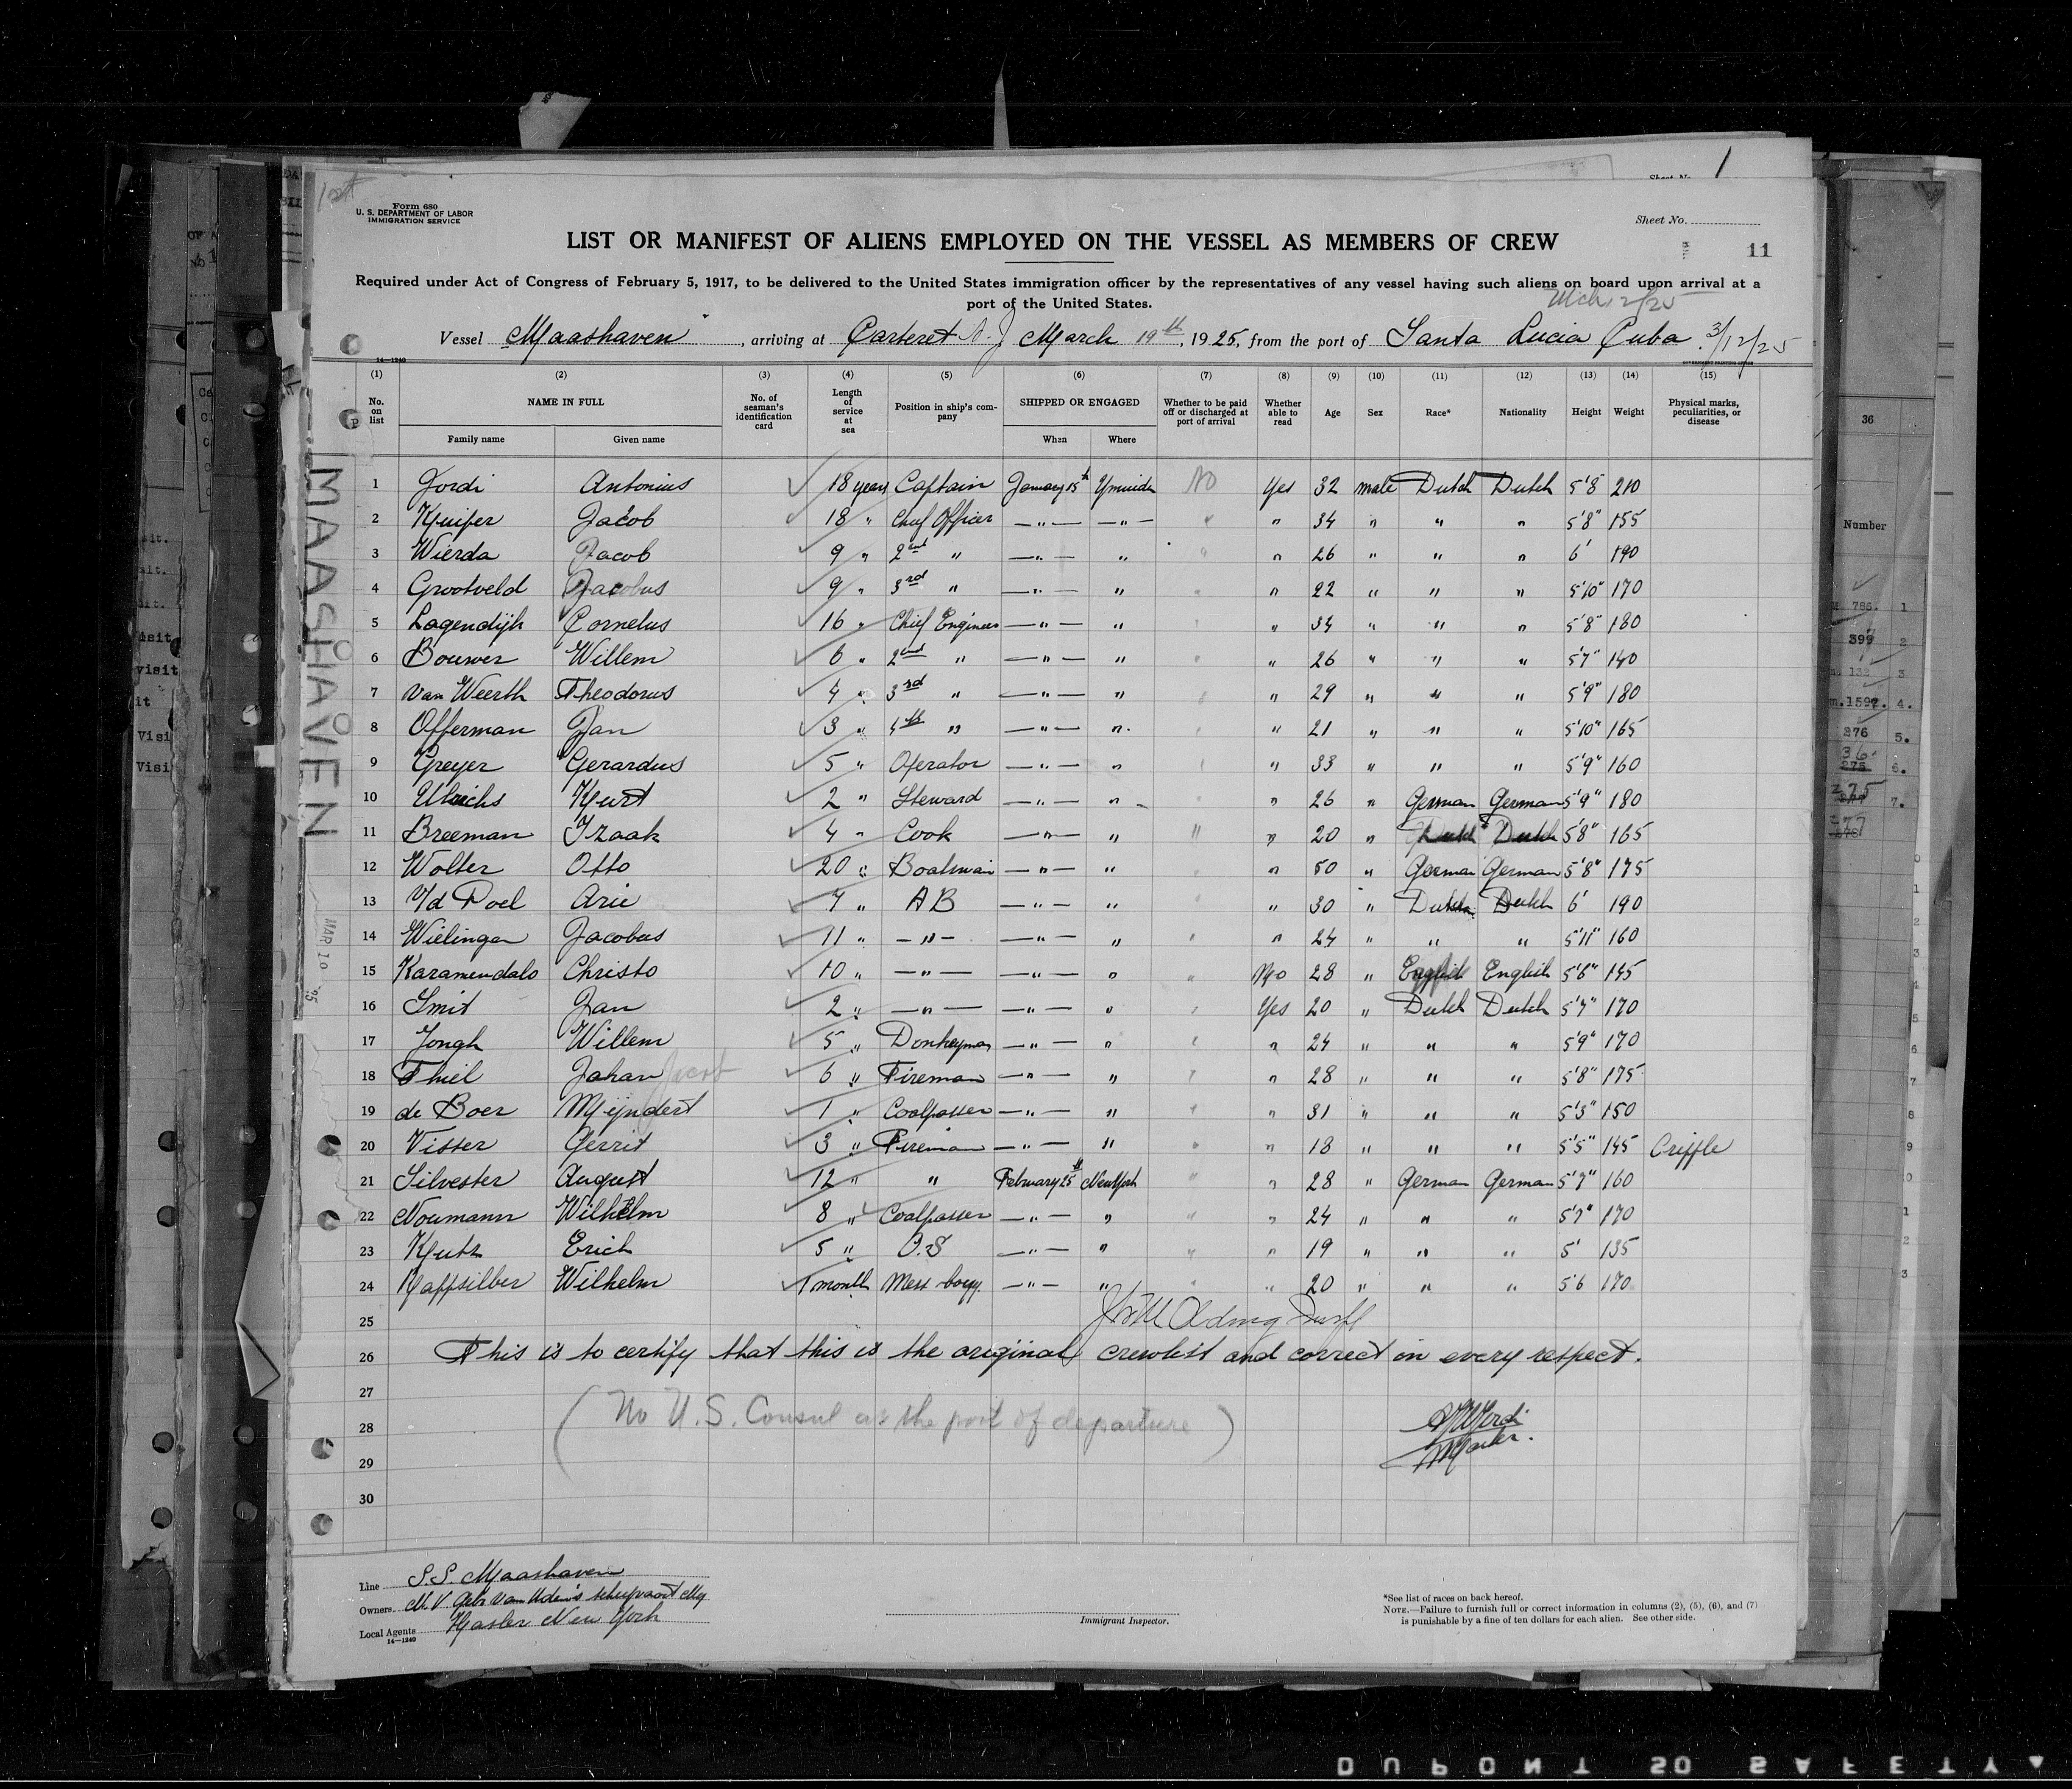 1
Sheet No.
Form 680
U. S. DEPARTMENT OF LABOR
IMMIGRATION SERVICE
Sheet No.
LIST OR MANIFEST OF ALIENS EMPLOYED ON THE VESSEL AS MEMBERS OF CREW
11
Required under Act of Congress of February 5, 1917, to be delivered to the United States immigration officer by the representatives of any vessel having such aliens on board upon arrival at a
port of the United States.
Vessel Maashaven, arriving at Carteret N.J March 19th, 1925, from the port of Santa Lucia Cuba. 3/12/25
14—1240
(1) (2) (3) (4) (5) (6) (7) (8) (9) (10) (11) (12) (13) (14) (15)
No. on list NAME IN FULL No. of seaman's identification card Length of service at sea Position in ship's company SHIPPED OR ENGAGED Whether to be paid off or discharged at port of arrival Whether able to read Age Sex Race* Nationality Height Weight Physical marks, peculiarities, or disease
Family name Given name When Where
1 Jordi Antonius 18 years Captain January 15th Ymuiden No Yes 32 male Dutch Dutch 5'8 210
2 Kuiper Jacob 18 " Chief Officer —"— —"— " " 34 " " " 5'8" 155
3 Wierda Jacob 9 " 2nd " —"— " " " 26 " " " 6' 190
4 Grootveld Jacobus 9 " 3rd " —"— " " " 22 " " " 5'10" 170
5 Lagendijk Cornelus 16 " Chief Engineer —"— " " " 34 " " " 5'8" 180
6 Bouwer Willem 6 " 2nd " —"— " " " 26 " " " 5'7" 140
7 van Weerth Theodorus 4 " 3rd " —"— " " " 29 " " " 5'9" 180
8 Offerman Jan 3 " 4th " —"— " " " 21 " " " 5'10" 165
9 Greyer Gerardus 5 " Operator —"— " " " 33 " " " 5'9" 160
10 Ulrichs Kurt 2 " Steward —"— " " " 26 " German German 5'9" 180
11 Breeman Izaak 4 " Cook —"— " " " 20 " Dutch Dutch 5'8" 165
12 Wolter Otto 20 " Boatswain —"— " " " 50 " German German 5'8" 175
13 V/d Poel Arie 7 " AB —"— " " " 30 " Dutch Dutch 6' 190
14 Wielinga Jacobus 11 " —"— —"— " " " 24 " " " 5'11" 160
15 Karamendalo Christo 10 " —"— —"— " " No 28 " English English 5'6" 145
16 Smit Jan 2 " —"— —"— " " Yes 20 " Dutch Dutch 5'7" 170
17 Jongh Willem 5 " Donkeyman —"— " " " 24 " " " 5'9" 170
18 Thiel Johan Jacob 6 " Fireman —"— " " " 28 " " " 5'8" 175
19 de Boer Meijndert 1 " Coalpasser —"— " " " 31 " " " 5'3" 150
20 Visser Gerrit 3 " Fireman —"— " " " 18 " " " 5'5" 145 Cripple
21 Silvester August 12 " " February 25th New York " " 28 " German German 5'7" 160
22 Noumann Wilhelm 8 " Coalpasser —"— " " " 24 " " " 5'7" 170
23 Kutz Erich 5 " O.S —"— " " " 19 " " " 5' 135
24 Kaffsilber Wilhelm 1 month Mess boy —"— " " " 20 " " " 5'6 170
25
26 This is to certify that this is the original crewlist and correct in every respect.
27
28 (No U.S. Consul at the port of departure)
29
30
Jordi
Master.
Line S.S. Maashaven
Owners N.V Gebr van Uden's scheepvaart Mij
Local Agents Hasler New York
14—1240
Immigrant Inspector.
*See list of races on back hereof.
NOTE.—Failure to furnish full or correct information in columns (2), (5), (6), and (7)
is punishable by a fine of ten dollars for each alien. See other side.
MAASHAVEN
MAR 10 '25
36
Number
DUPONT SO SAFETY